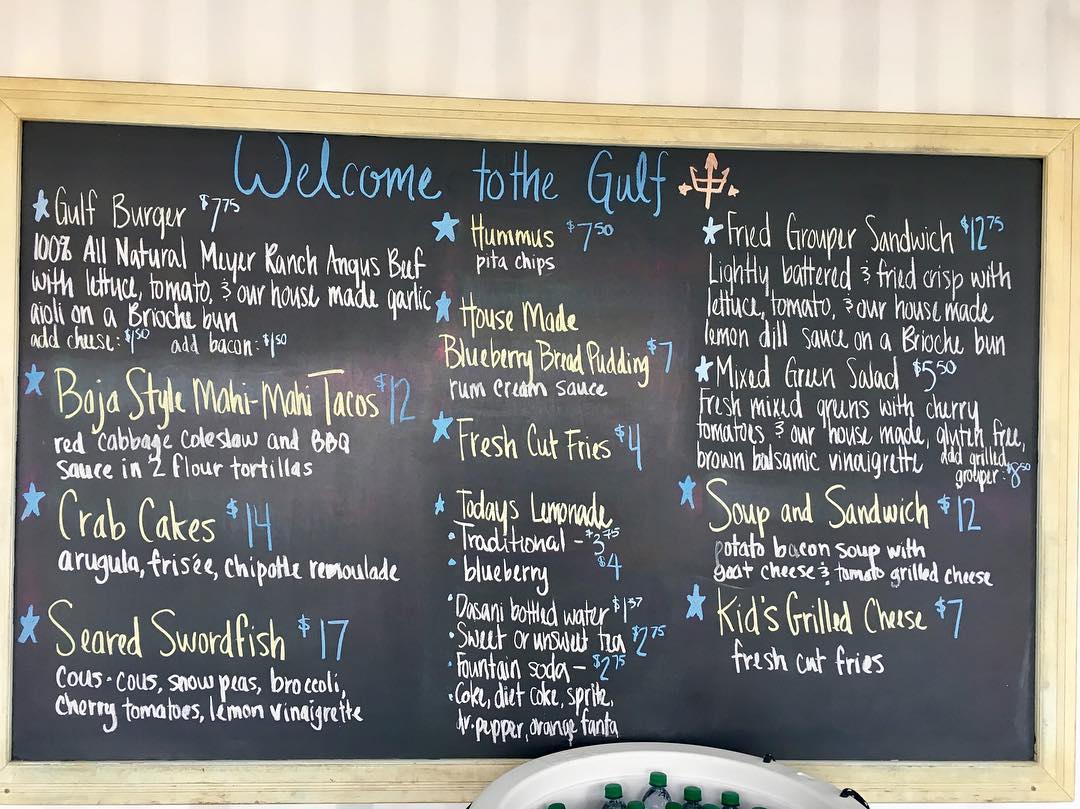 Welcome to the Gulf
Gulf Burger $7.75
100% All Natural Meyer Ranch Angus Beef
with lettuce, tomato, & our house made garlic
aioli on a Brioche bun
add cheese: $1.50 add bacon: $1.50
Baja Style Mahi-Mahi Tacos $12
red cabbage coleslaw and BBQ
sauce in 2 flour tortillas
Crab Cakes $14
arugula, frisée, chipotle remoulade
Seared Swordfish $17
cous-cous, snow peas, broccoli,
cherry tomatoes, lemon vinaigrette
Hummus $7.50
pita chips
House Made
Blueberry Bread Pudding $7
rum cream sauce
Fresh Cut Fries $4
Todays Lemonade
• Traditional - $3.75
• blueberry $4
• Dasani bottled water $1.37
• Sweet or unsweet tea $2.75
• Fountain soda - $2.75
• Coke, diet coke, sprite,
dr. pepper, orange fanta
Fried Grouper Sandwich $12.75
Lightly battered & fried crisp with
lettuce, tomato, & our house made
lemon dill sauce on a Brioche bun
Mixed Green Salad $5.50
Fresh mixed greens with cherry
tomatoes & our house made, gluten free,
brown balsamic vinaigrette add grilled
grouper: $8.50
Soup and Sandwich $12
potato bacon soup with
goat cheese & tomato grilled cheese
Kid's Grilled Cheese $7
fresh cut fries